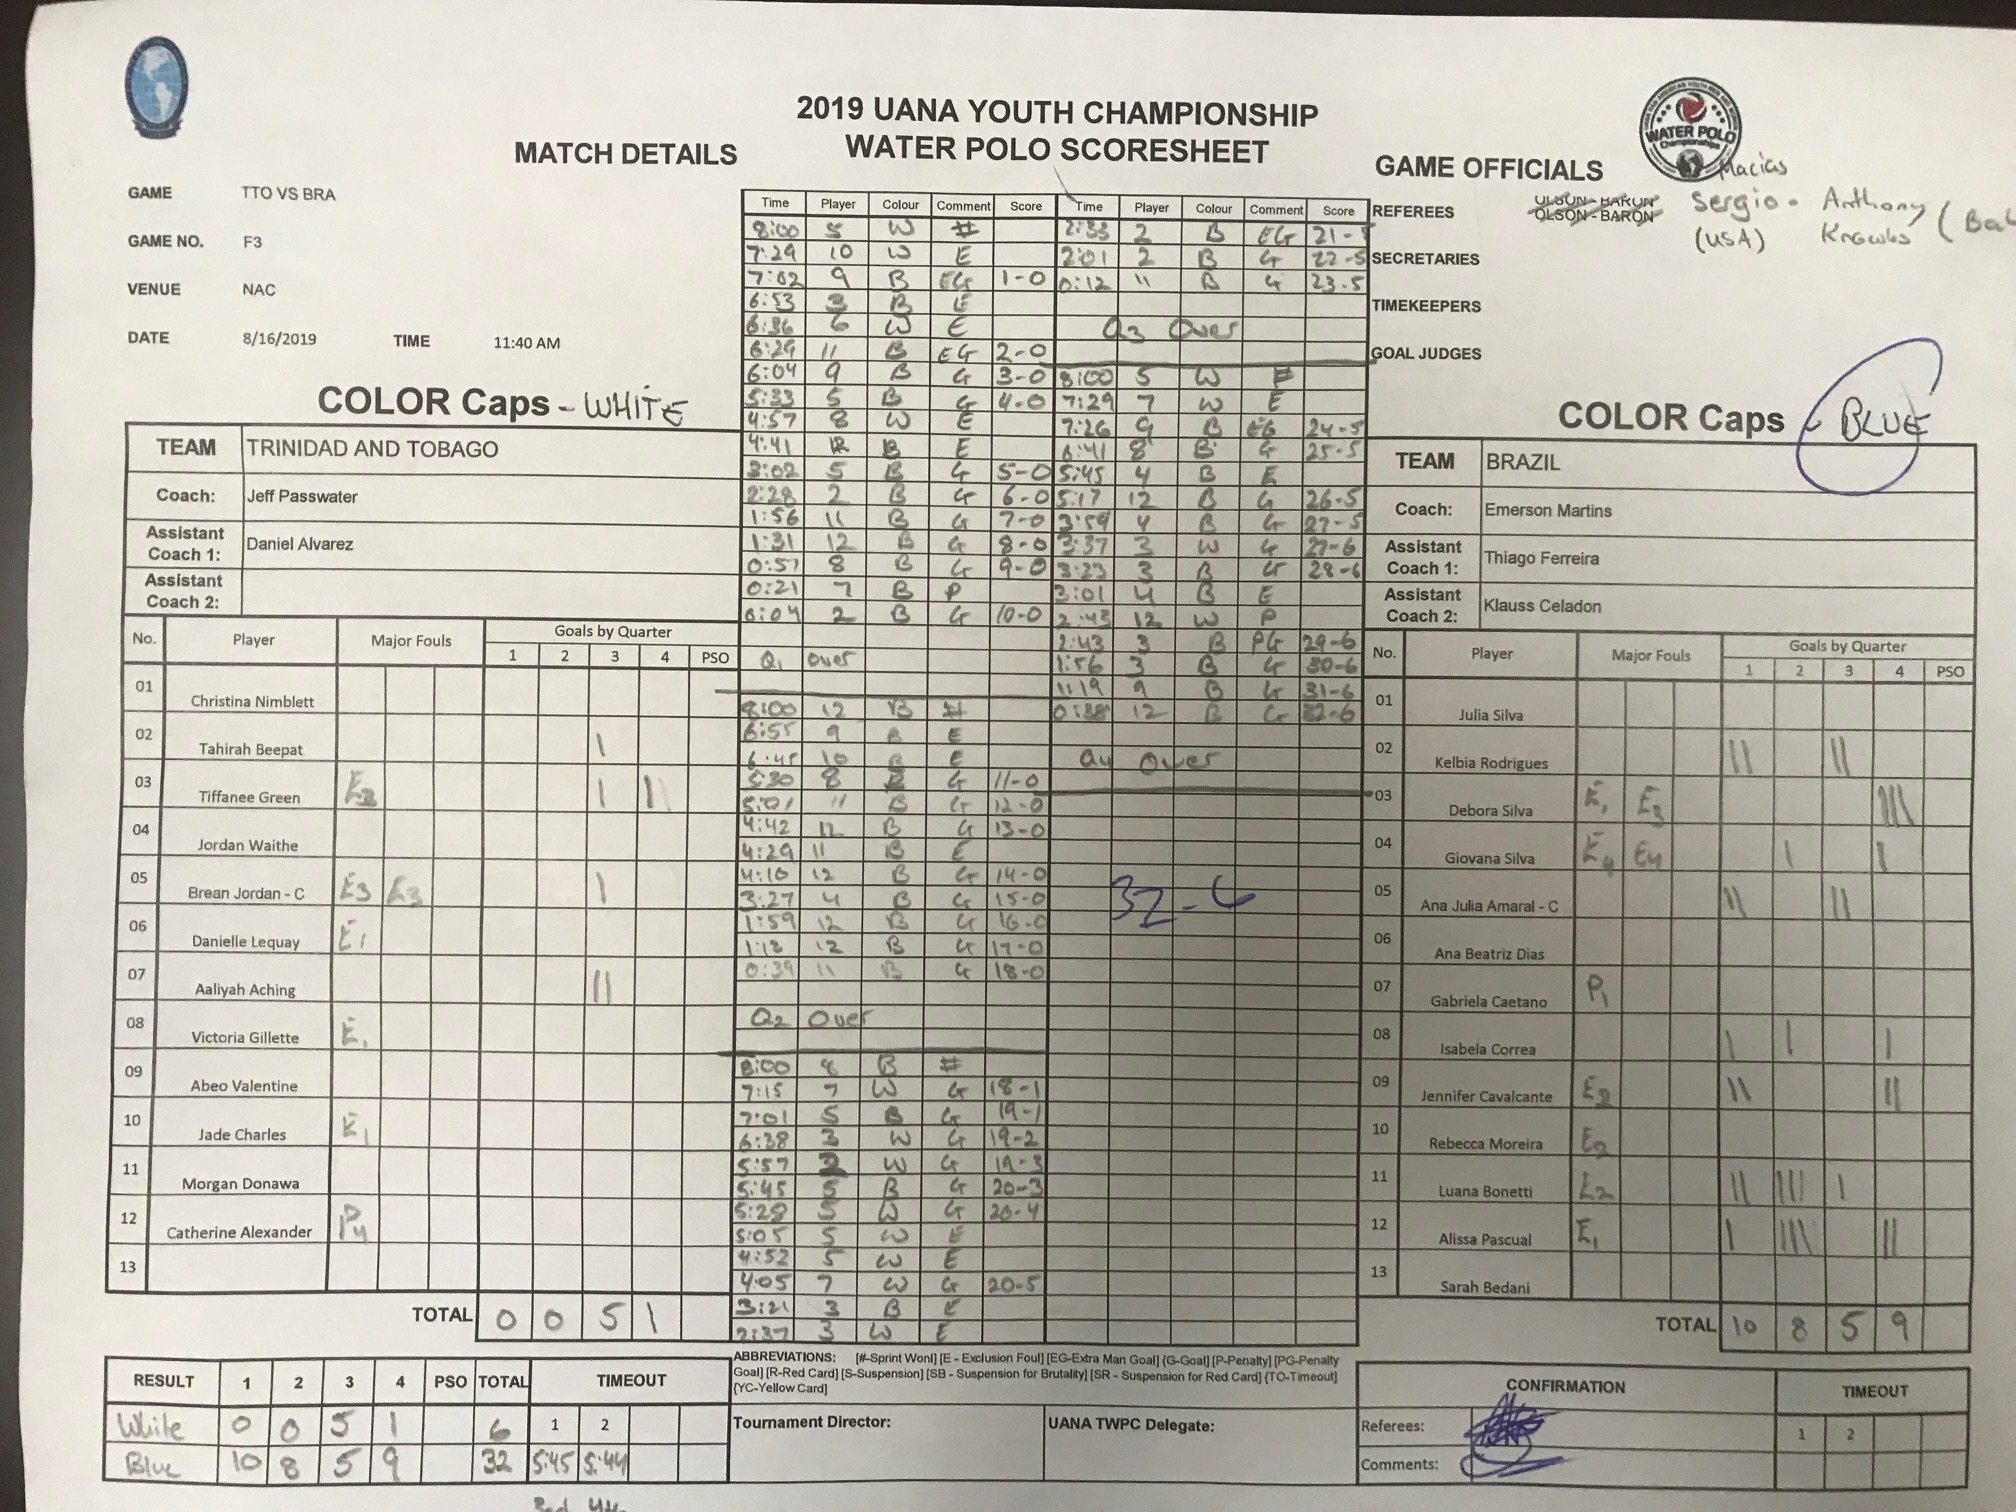 2019 UANA YOUTH CHAMPIONSHIP
WATER POLO SCORESHEET
MATCH DETAILS
GAME TTO VS BRA
GAME NO. F3
VENUE NAC
DATE 8/16/2019 TIME 11:40 AM
GAME OFFICIALS
WATER POLO
Championships
Macias
REFEREES OLSON-BARON Sergio - Anthony
OLSON-BARON (USA) Knowles
SECRETARIES
TIMEKEEPERS
GOAL JUDGES
COLOR Caps - WHITE
TEAM TRINIDAD AND TOBAGO
Coach: Jeff Passwater
Assistant Coach 1: Daniel Alvarez
Assistant Coach 2:
No. Player Major Fouls Goals by Quarter
1 2 3 4 PSO
01 Christina Nimblett
02 Tahirah Beepat |
03 Tiffanee Green E3 | |
04 Jordan Waithe
05 Brean Jordan - C E3 E3 |
06 Danielle Lequay E1
07 Aaliyah Aching ||
08 Victoria Gillette E1
09 Abeo Valentine
10 Jade Charles E1
11 Morgan Donawa
12 Catherine Alexander P4
13
TOTAL 0 0 5 1
RESULT 1 2 3 4 PSO TOTAL TIMEOUT
White 0 0 5 1 6 1 2
Blue 10 8 5 9 32 5:45 5:44
Time Player Colour Comment Score
8:00 5 W #
7:29 10 W E
7:02 9 B EG 1-0
6:53 3 B E
6:36 6 W E
6:29 11 B EG 2-0
6:04 9 B G 3-0
5:33 5 B G 4-0
4:57 8 W E
4:41 12 B E
3:02 5 B G 5-0
2:28 2 B G 6-0
1:56 11 B G 7-0
1:31 12 B G 8-0
0:57 8 B G 9-0
0:21 7 B P
0:04 2 B G 10-0
Q1 over
8:00 12 B #
6:55 9 B E
6:45 10 B E
5:30 8 B G 11-0
5:01 11 B G 12-0
4:42 12 B G 13-0
4:29 11 B E
4:10 12 B G 14-0
3:27 4 B G 15-0
1:59 12 B G 16-0
1:13 12 B G 17-0
0:39 11 B G 18-0
Q2 Over
8:00 8 B #
7:15 7 W G 18-1
7:01 5 B G 19-1
6:38 3 W G 19-2
5:57 2 W G 19-3
5:45 5 B G 20-3
5:28 5 W G 20-4
5:05 5 W E
4:52 5 W E
4:05 7 W G 20-5
3:21 3 B E
2:37 3 W E
Time Player Colour Comment Score
2:33 2 B EG 21-5
2:01 2 B G 22-5
0:12 11 B G 23-5
Q3 Over
8:00 5 W #
7:29 7 W E
7:26 9 B EG 24-5
6:41 8 B G 25-5
5:45 4 B E
5:17 12 B G 26-5
3:59 4 B G 27-5
3:37 3 W G 27-6
3:23 3 B G 28-6
3:01 4 B E
2:43 12 W P
2:43 3 B PG 29-6
1:56 3 B G 30-6
1:19 9 B G 31-6
0:38 12 B G 32-6
Q4 Over
32-6
ABBREVIATIONS: [#-Sprint Wonl] [E - Exclusion Foul] [EG-Extra Man Goal] {G-Goal] [P-Penalty] [PG-Penalty
Goal] [R-Red Card] [S-Suspension] [SB - Suspension for Brutality] [SR - Suspension for Red Card] {TO-Timeout]
{YC-Yellow Card]
Tournament Director: UANA TWPC Delegate:
COLOR Caps - BLUE
TEAM BRAZIL
Coach: Emerson Martins
Assistant Coach 1: Thiago Ferreira
Assistant Coach 2: Klauss Celadon
No. Player Major Fouls Goals by Quarter
1 2 3 4 PSO
01 Julia Silva
02 Kelbia Rodrigues || ||
03 Debora Silva E1 E3 |||
04 Giovana Silva E4 E4 | |
05 Ana Julia Amaral - C || ||
06 Ana Beatriz Dias
07 Gabriela Caetano P1
08 Isabela Correa | | |
09 Jennifer Cavalcante E2 || ||
10 Rebecca Moreira E2
11 Luana Bonetti E2 || ||| |
12 Alissa Pascual E1 | |||| ||
13 Sarah Bedani
TOTAL 10 8 5 9
CONFIRMATION TIMEOUT
Referees: 1 2
Comments: